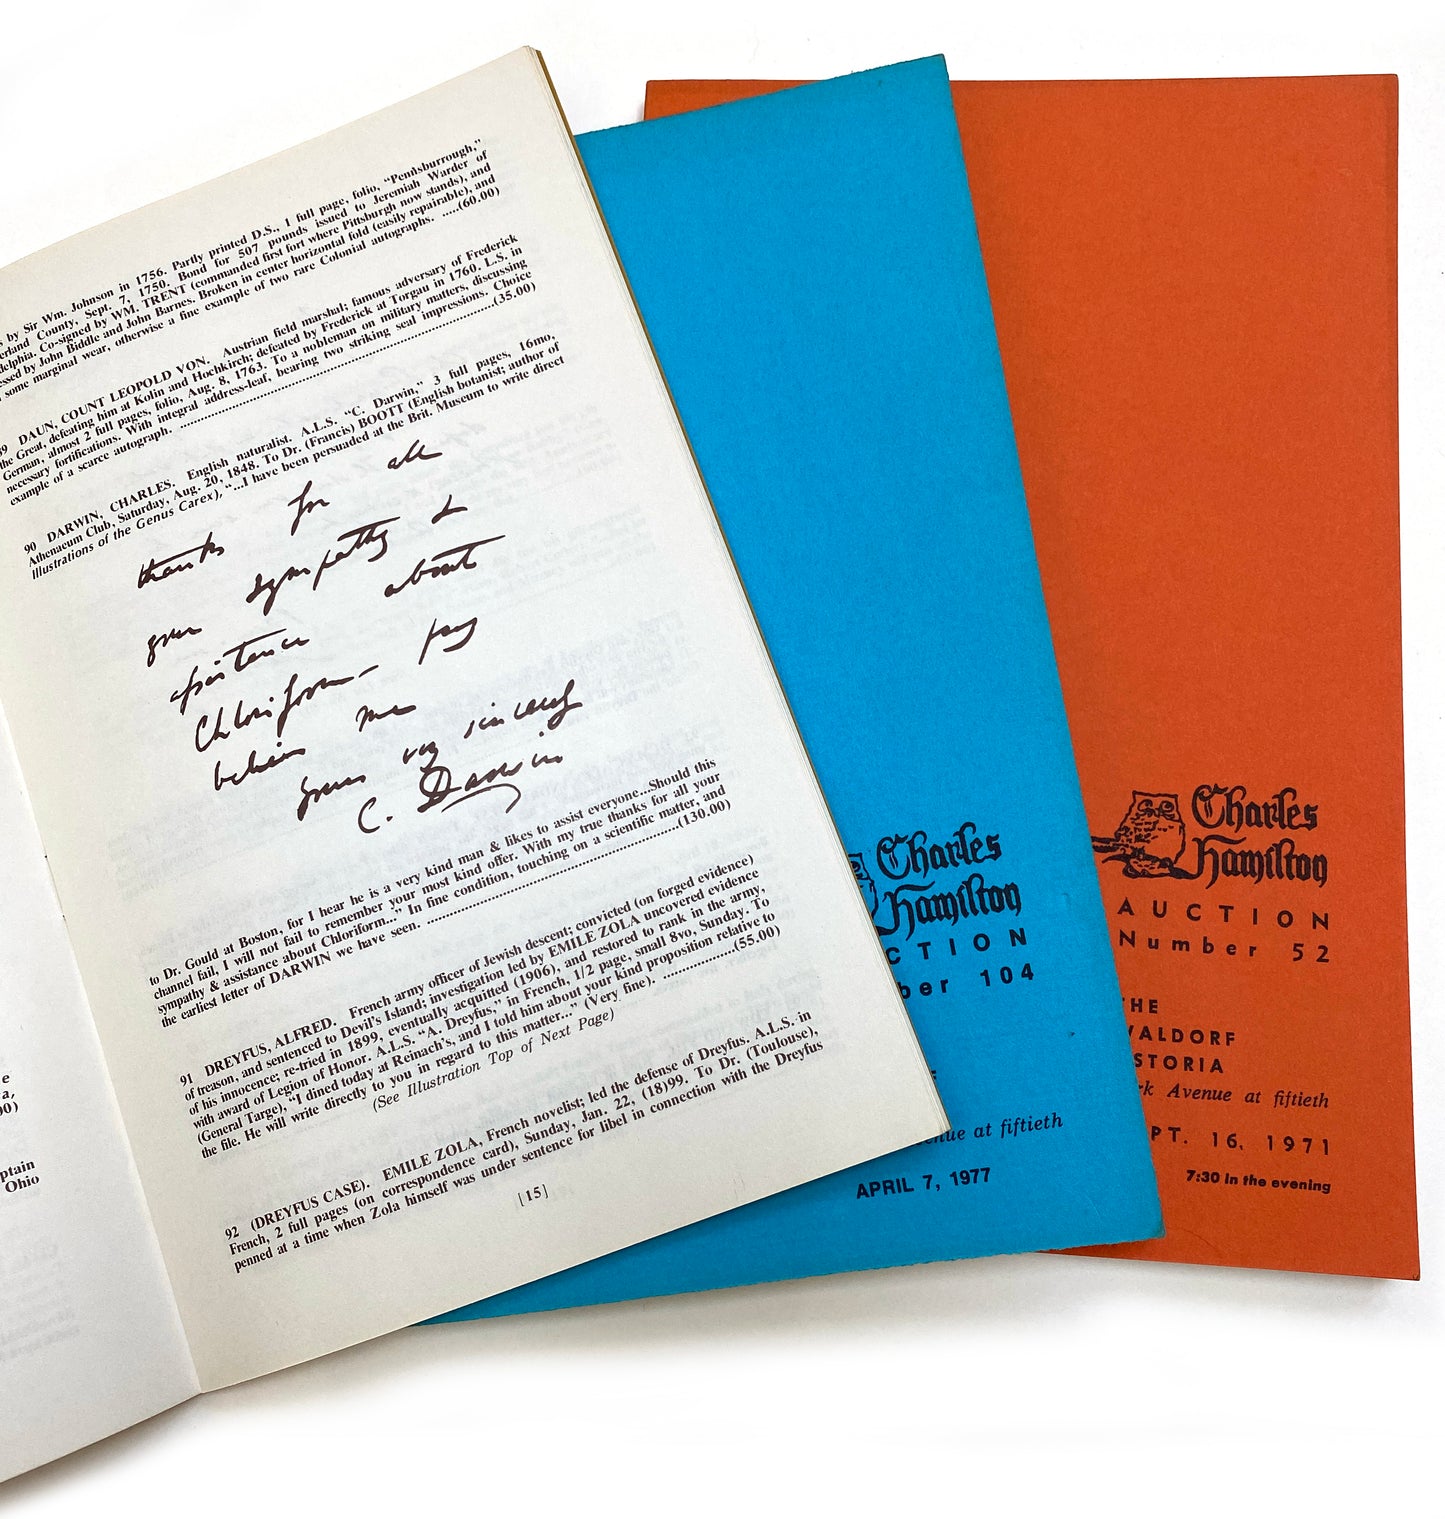 s by Sir Wm. Johnson in 1756. Partly printed D.S., 1 full page, folio, "Pennsburrough,"
erland County, Sept. 7, 1750. Bond for 507 pounds issued to Jeremiah Warder of
delphia. Co-signed by WM. TRENT (commanded first fort where Pittsburgh now stands), and
essed by John Biddle and John Barnes. Broken in center horizontal fold (easily repairable), and
some marginal wear, otherwise a fine example of two rare Colonial autographs. .....(60.00)
89 DAUN, COUNT LEOPOLD VON. Austrian field marshal; famous adversary of Frederick
the Great, defeating him at Kolin and Hochkirch; defeated by Frederick at Torgau in 1760. L.S. in
German, almost 2 full pages, folio, Aug. 8, 1763. To a nobleman on military matters, discussing
necessary fortifications. With integral address-leaf, bearing two striking seal impressions. Choice
example of a scarce autograph. ..........(35.00)
90 DARWIN, CHARLES. English naturalist. A.L.S. "C. Darwin," 3 full pages, 16mo,
Athenaeum Club, Saturday, Aug. 20, 1848. To Dr. (Francis) BOOTT (English botanist; author of
Illustrations of the Genus Carex), "...I have been persuaded at the Brit. Museum to write direct
thanks for all
your sympathy &
assistance about
Chloriform— pray
believe me
yours very sincerely
C. Darwin
to Dr. Gould at Boston, for I hear he is a very kind man & likes to assist everyone...Should this
channel fail, I will not fail to remember your most kind offer. With my true thanks for all your
sympathy & assistance about Chloriform..." In fine condition, touching on a scientific matter, and
the earliest letter of DARWIN we have seen. ..........(130.00)
91 DREYFUS, ALFRED. French army officer of Jewish descent; convicted (on forged evidence)
of treason, and sentenced to Devil's Island; investigation led by EMILE ZOLA uncovered evidence
of his innocence; re-tried in 1899, eventually acquitted (1906), and restored to rank in the army,
with award of Legion of Honor. A.L.S. "A. Dreyfus," in French, 1/2 page, small 8vo, Sunday. To
(General Targe), "I dined today at Reinach's, and I told him about your kind proposition relative to
the file. He will write directly to you in regard to this matter..." (Very fine). ..........(55.00)
(See Illustration Top of Next Page)
92 (DREYFUS CASE). EMILE ZOLA, French novelist; led the defense of Dreyfus. A.L.S. in
French, 2 full pages (on correspondence card), Sunday, Jan. 22, (18)99. To Dr. (Toulouse),
penned at a time when Zola himself was under sentence for libel in connection with the Dreyfus
[15]
e
a,
0)
ptain
Ohio
Charles
Hamilton
CTION
ber 104
nue at fiftieth
APRIL 7, 1977
Charles
Hamilton
AUCTION
Number 52
HE
WALDORF
STORIA
rk Avenue at fiftieth
PT. 16, 1971
7:30 in the evening